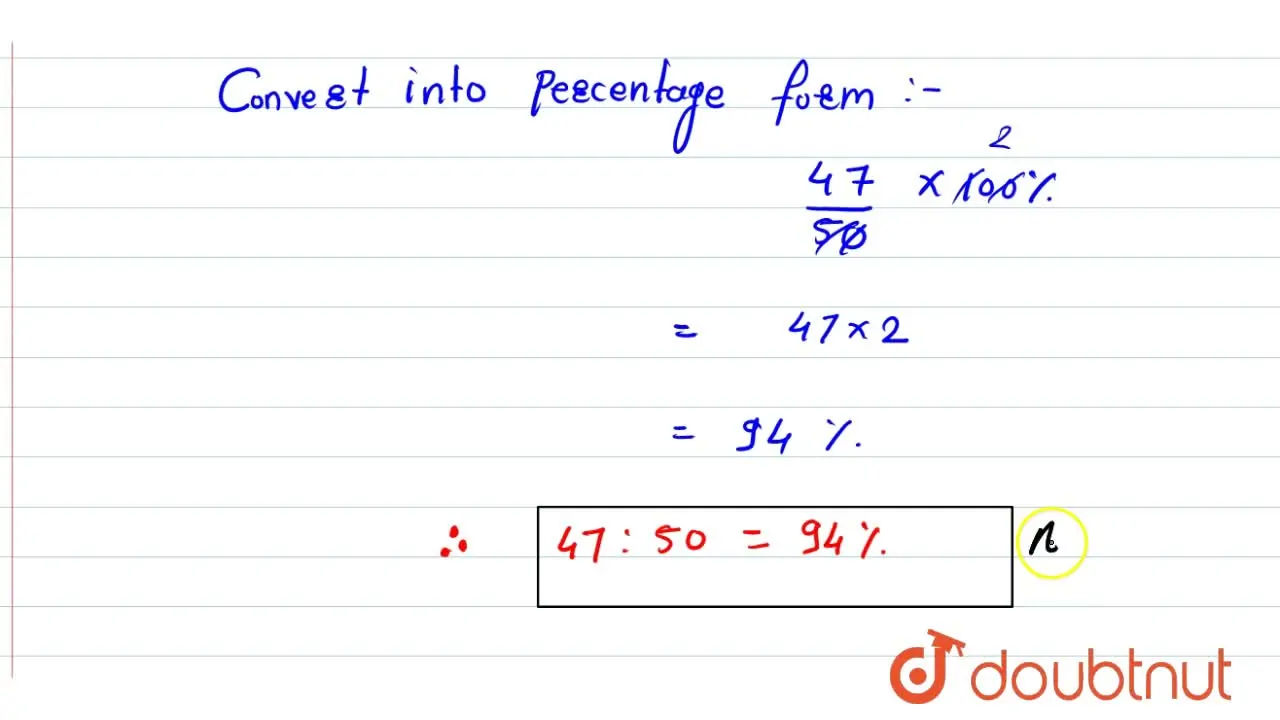 Convert into Percentage form :-
2
47 × 100%
50
= 47 × 2
= 94 %
∴ 47 : 50 = 94%
doubtnut